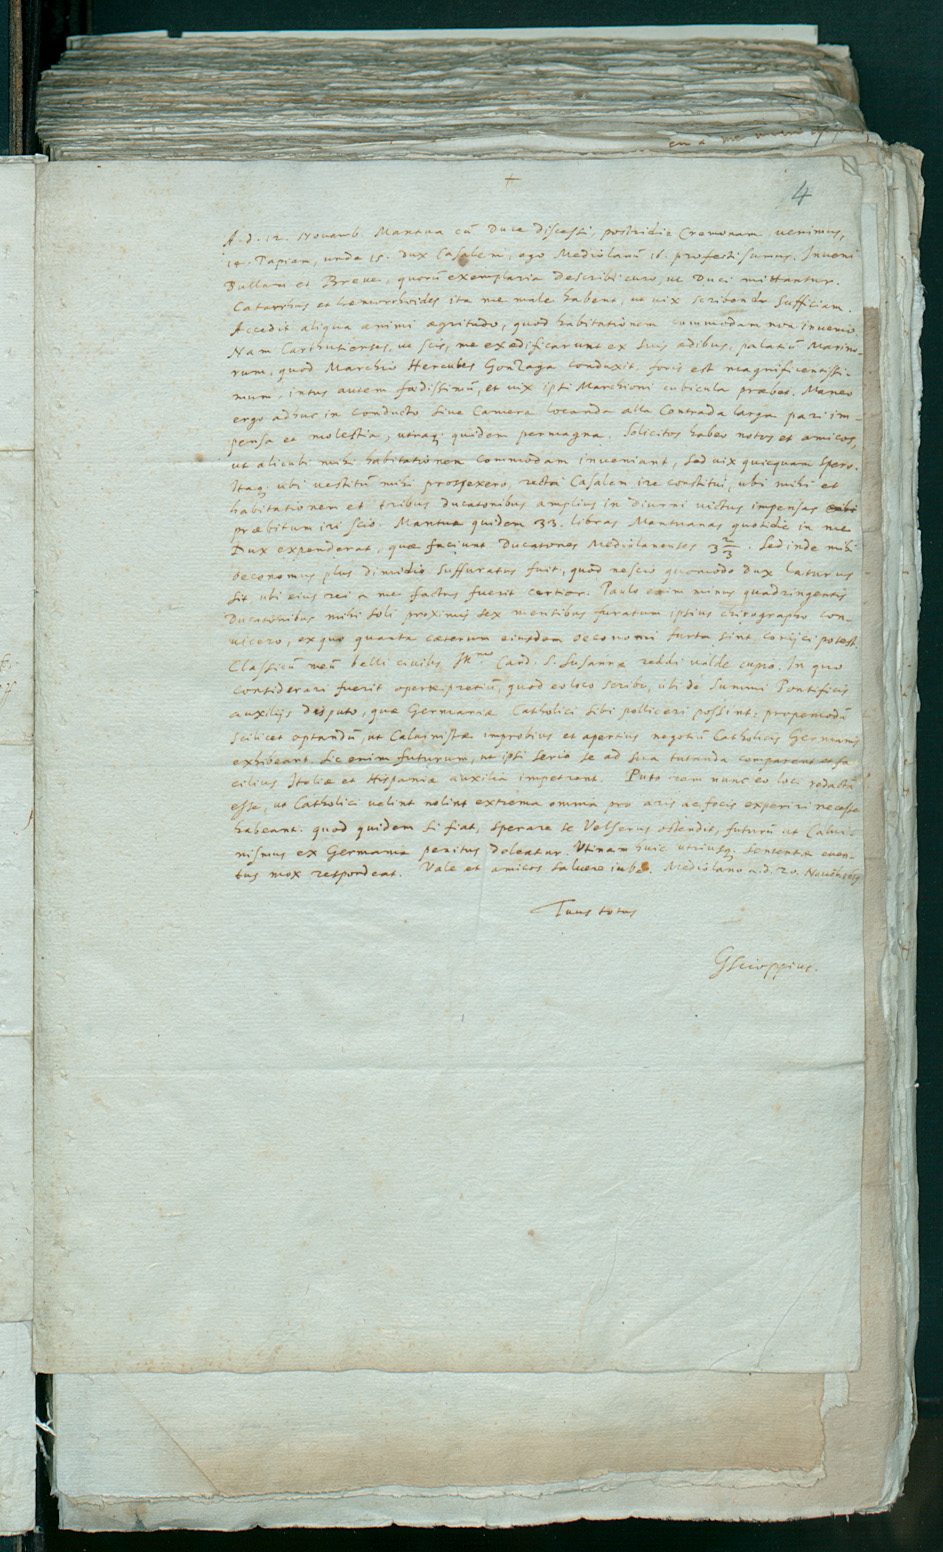 +
4
A. d. 12. Novemb. Mantua cū Duce discessi, postridie Cremonam venimus,
14. Papiam, unde 15. Dux Casalem, ego Mediolanū 16. profecti sumus. Inveni
Bullam et Breve, quorū exemplaria describi curo, ut Duci mittantur.
Catarrhus et hemorrhoides ita me male habent, ut vix scribendo sufficiam.
Accedit aliqua animi aegritudo, quod habitationem commodam non invenio.
Nam Carthusienses, ut scis, me exaedificarunt ex suis aedibus, palatiū Marino-
rum, quod Marchio Hercules Gonzaga conduxit, foris est magnificentissi-
mum, intus autem foedissimū, et vix ipsi Marchioni cubicula praebet. Maneo
ergo adhuc in conducto sive Camera locanda alla Contrada larga pari im-
pensa et molestia, utraq; quidem permagna. Solicitos habeo notos et amicos,
ut alicubi mihi habitationem commodam inveniant, sed vix quicquam spero.
Itaq; ubi vestitū mihi prospexero, recta Casalem ire constitui, ubi mihi et
habitationem et tribus ducatonibus amplius in diurni victus impensas
praebitum iri scio. Mantuae quidem 33. libras Mantuanas quotidie in me
Dux expenderat, quae faciunt Ducatones Mediolanenses 3 2/3. Sed inde mihi
oeconomus plus dimidio suffuratus fuit, quod nescio quomodo Dux laturus
sit, ubi eius rei a me factus fuerit certior. Paulo enim minus quadringentis
Ducatonibus mihi soli proximis sex mensibus furatum ipsius chirographo con-
vicero, ex quo quanta caeterum eiusdem oeconomi furta sint conijci potest.
Classicū meū belli civilis Ill.mo Card. S. Susannae reddi valde cupio. In quo
considerari fuerit operae pretiū, quod eo loco scribo, ubi de Summi Pontificis
auxilijs disputo, quae Germaniae Catholici sibi polliceri possint: propemodū
scilicet optandū, ut Calvinistae improbius et apertius negotiū Catholicis Germanis
exhibeant. Sic enim futurum, ut ipsi serio se ad sua tutanda comparent et fa
cilius Italiae et Hispaniae auxilia impetrent. Puto rem nunc eo loci redactā
esse, ut Catholici velint nolint extrema omnia pro aris ac focis experiri necesse
habeant: quod quidem si fiat, sperare se Velserus ostendit, futurū ut Calvi-
nismus ex Germania penitus deleatur. Utinam huic utriusq; sententiae even-
tus mox respondeat. Vale et amicos salvere iube. Mediolano a. d. 20. Novēbris
Tuus totus
GScioppius.